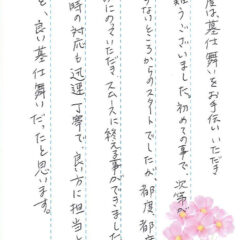 度は、墓仕舞いをお手伝いただき
難うございました。初めての事で、次第が
らないところからのスタートでしたが、都度、都度
にのっていただき、スムースに終える事ができました
時の対応も迅速丁寧で、良い方に担当し
と、良い墓仕舞いだったと思います。